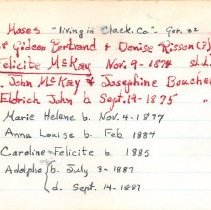 Moses "living in Clack. Co." Gen. 22
Gideon Bertrand & Denise
Felicite McKay Nov. 9-1874
John McKay & Josephine Boucher
Eldrich John b. Sept. 19-1875 "
Marie Helene b. Nov. 4-1877
Anna Louise b. Feb. 1884
Caroline Felicite b 1885
Adolpha b. July 3-1887
d. Sept. 14-1887